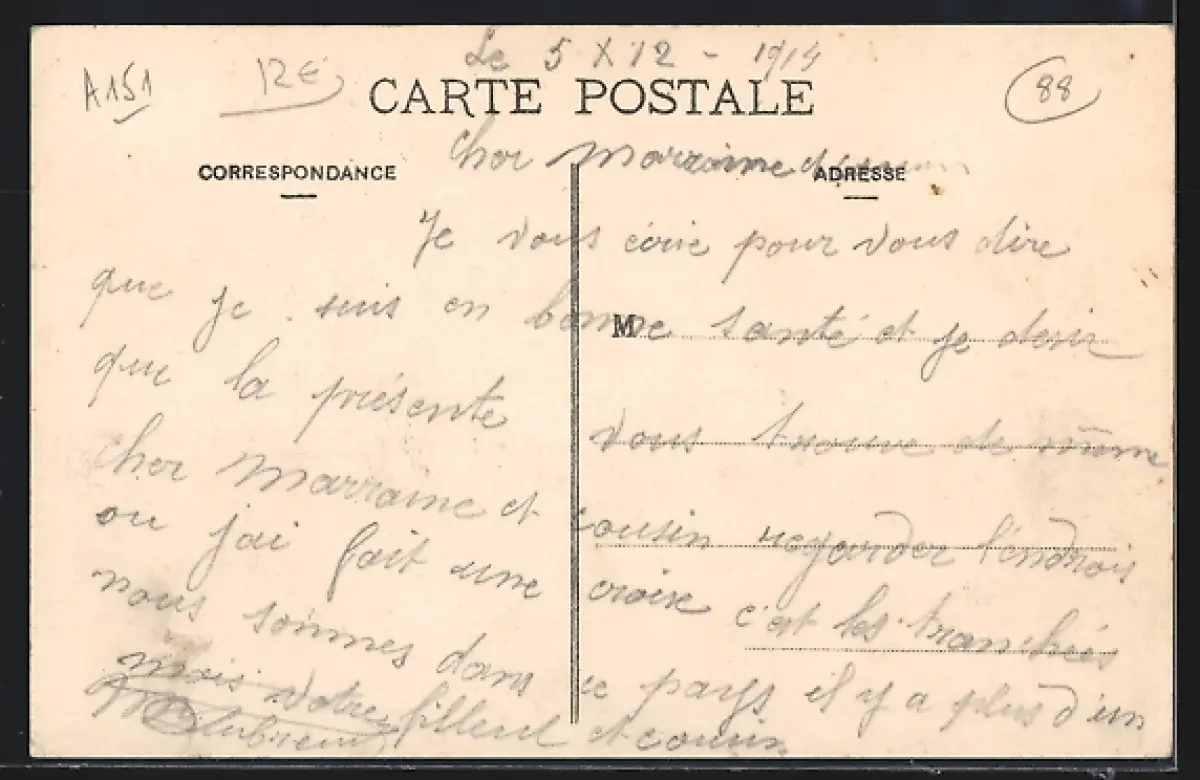 Le 5 X 12 - 1914
A151
12€
88
CARTE POSTALE
CORRESPONDANCE
ADRESSE
cher Marraine et
Je vous écrie pour vous dire
que je suis en bonne santé et je desir
M
que la présente vous trouve de même
cher Marraine et cousin regarder l'endrois
ou jai fait une croix c'est les tranchées
nous sommes dans ce pays il y a plus d'un
mois votre filleul et cousin